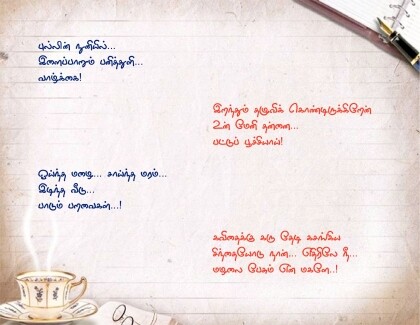 புல்லின் நுனியில்...
இளைப்பாறும் பனித்துளி...
வாழ்க்கை!
இறந்தும் தழுவிக் கொண்டிருக்கிறேன்
உன் மேனி தன்னை...
பட்டுப் பூச்சியாய்!
ஓய்ந்த மழை... சாய்ந்த மரம்...
இடிந்த வீடு...
பாடும் பறவைகள்...!
கவிதைக்கு கரு தேடி கசங்கிய
சிந்தையோடு நான்... எதிரிலே நீ...
மழலை பேசும் என் மகளே..!